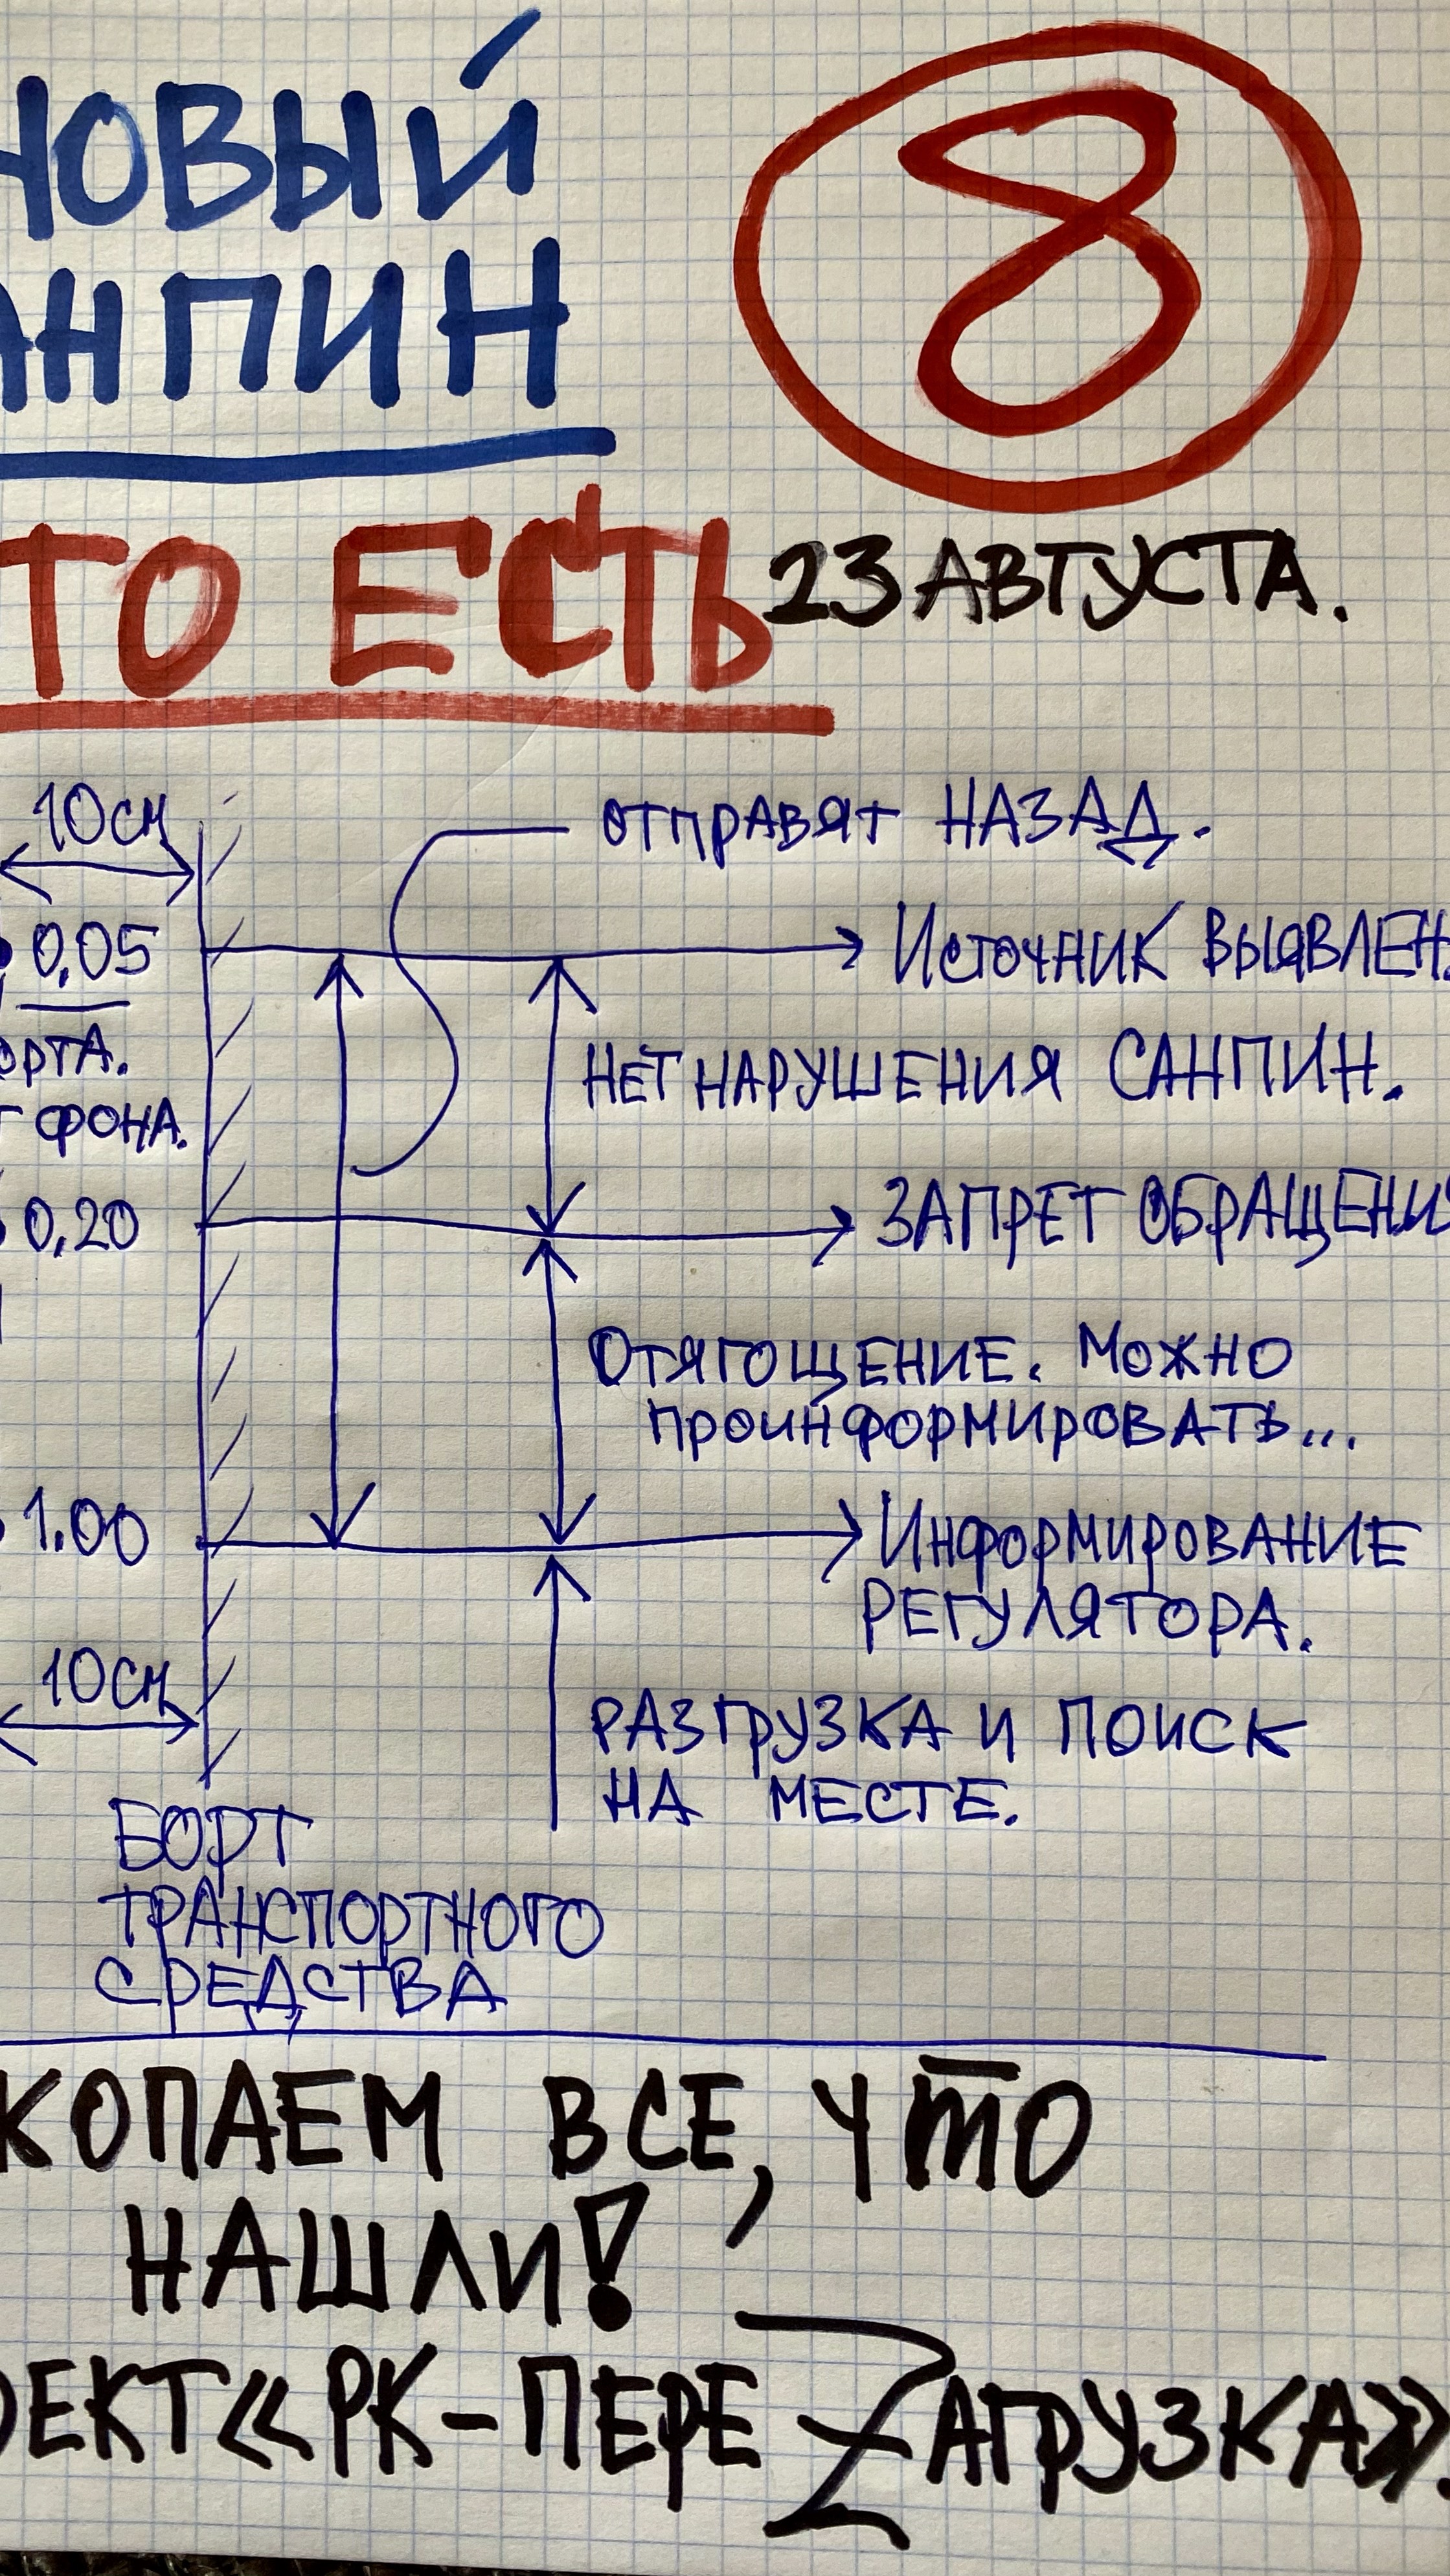 НОВЫЙ
АНПИН
8
ТО ЕСТЬ
23 АВГУСТА.
10 см
ОТПРАВЯТ НАЗАД.
0,05
ИСТОЧНИК ВЫЯВЛЕН.
ОРТА.
Г ФОНА.
НЕТ НАРУШЕНИЯ САНПИН.
0,20
ЗАПРЕТ ОБРАЩЕНИ
ОТЯГОЩЕНИЕ. МОЖНО
ПРОИНФОРМИРОВАТЬ...
1.00
ИНФОРМИРОВАНИЕ
РЕГУЛЯТОРА.
10 см
РАЗГРУЗКА И ПОИСК
НА МЕСТЕ.
БОРТ
ТРАНСПОРТНОГО
СРЕДСТВА
КОПАЕМ ВСЕ, ЧТО
НАШЛИ!
ОЕКТ «РК-ПЕРЕZАГРУЗКА».